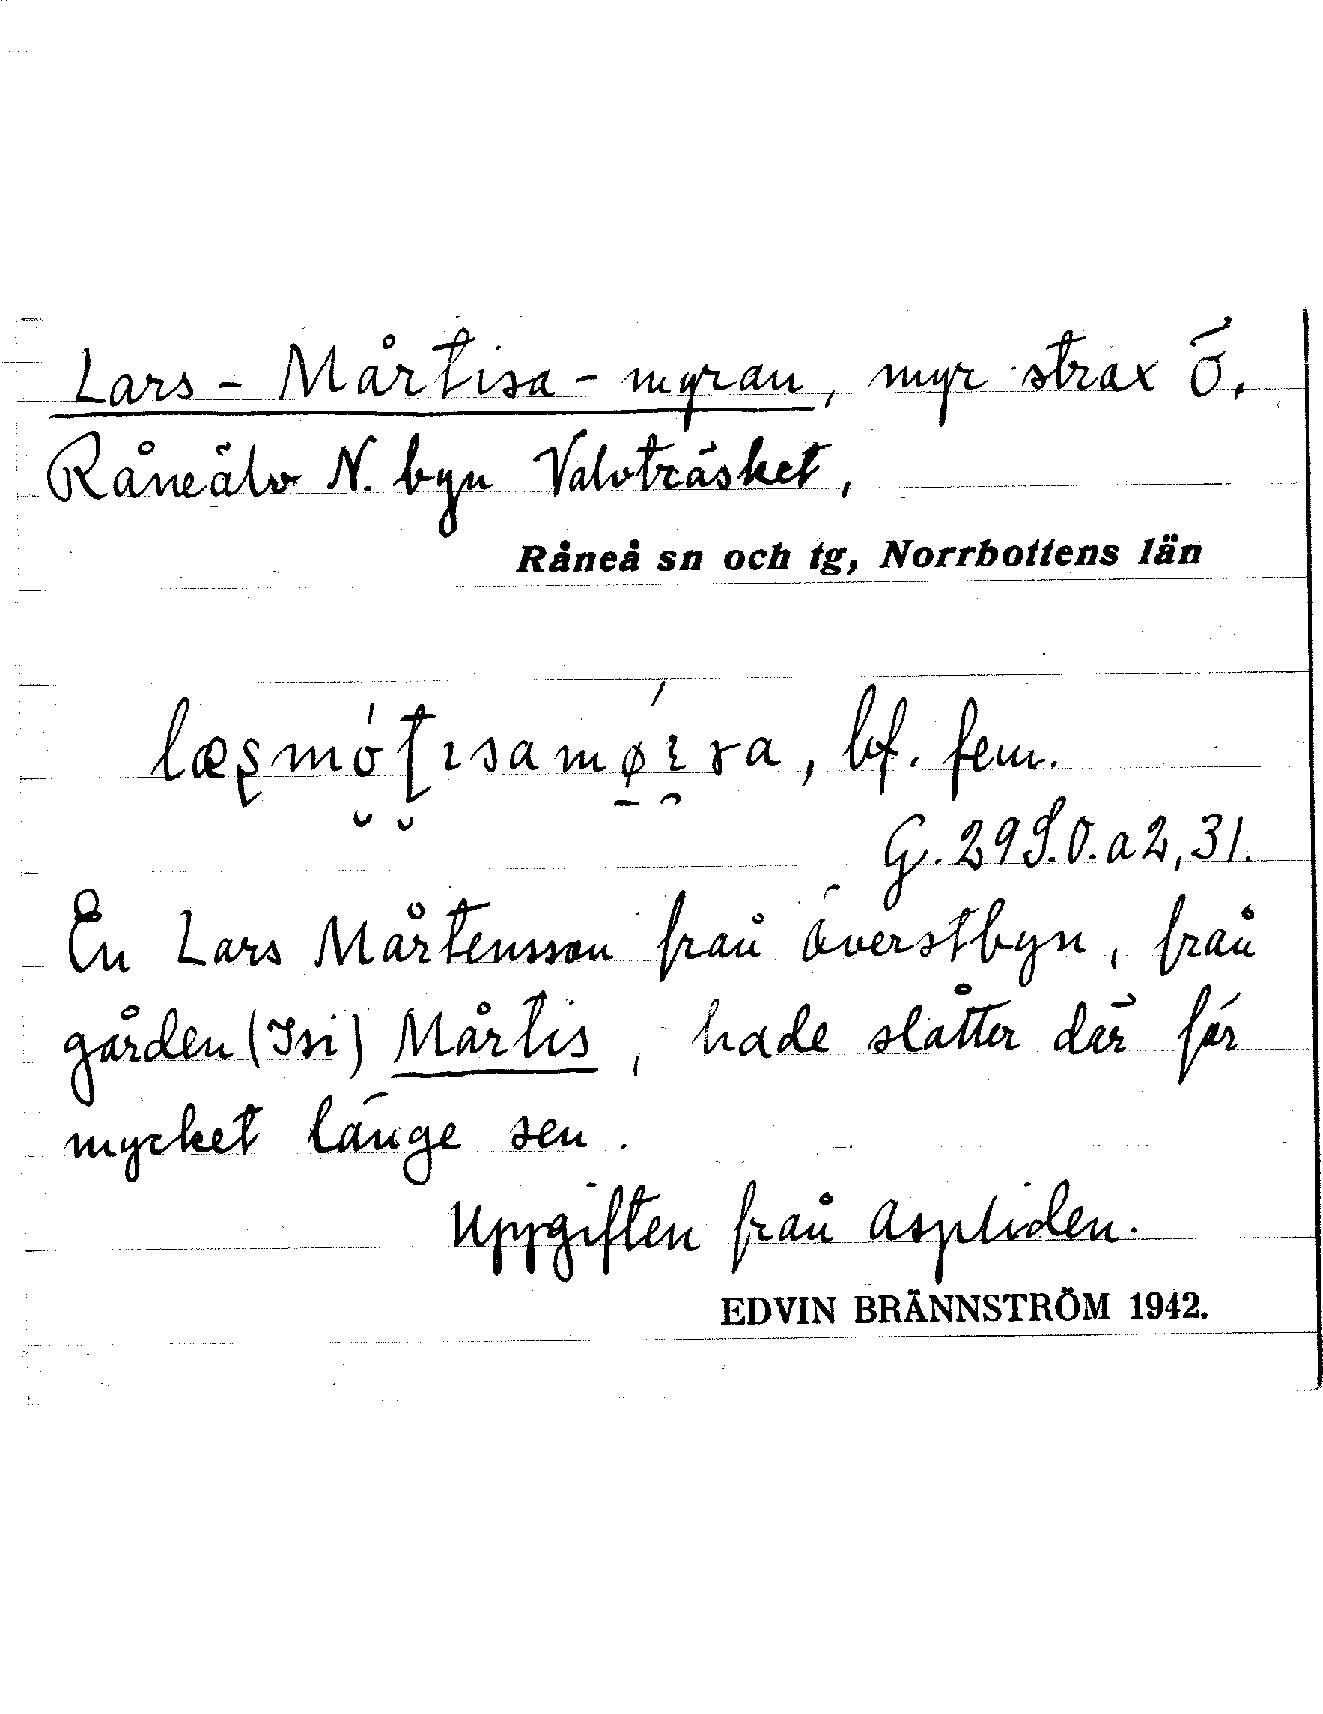 Lars-Mårtisa-myran, myr strax Ö.
Råneälv N. byn Valvträsket,
Råneå sn och tg, Norrbottens län
bf. fem.
G. 29 S.O. a 2, 31.
En Lars Mårtensson från Överstbyn, från
gården (Isi) Mårtis, hade slåtter där för
mycket länge sen.
Uppgiften från Aspliden.
EDVIN BRÄNNSTRÖM 1942.